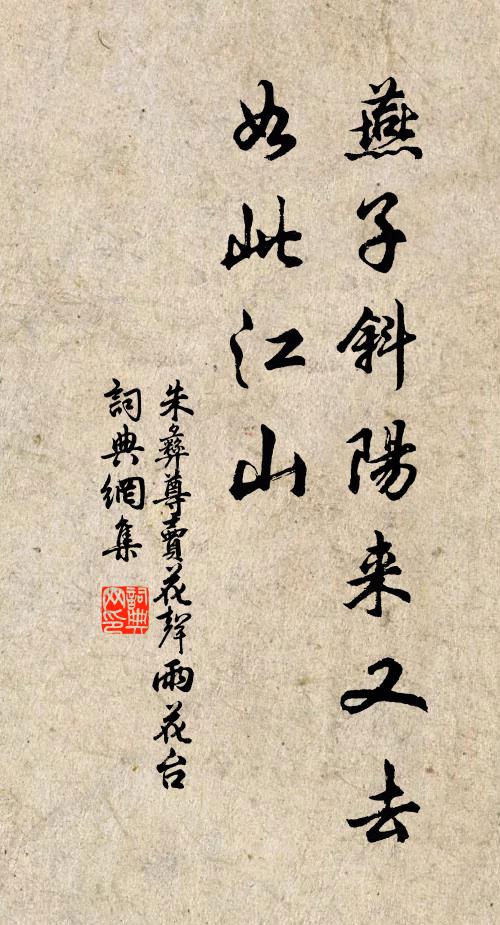 燕子斜陽来又去
如此江山
朱彝尊賣花聲雨花台
詞典網集
詞典
网印